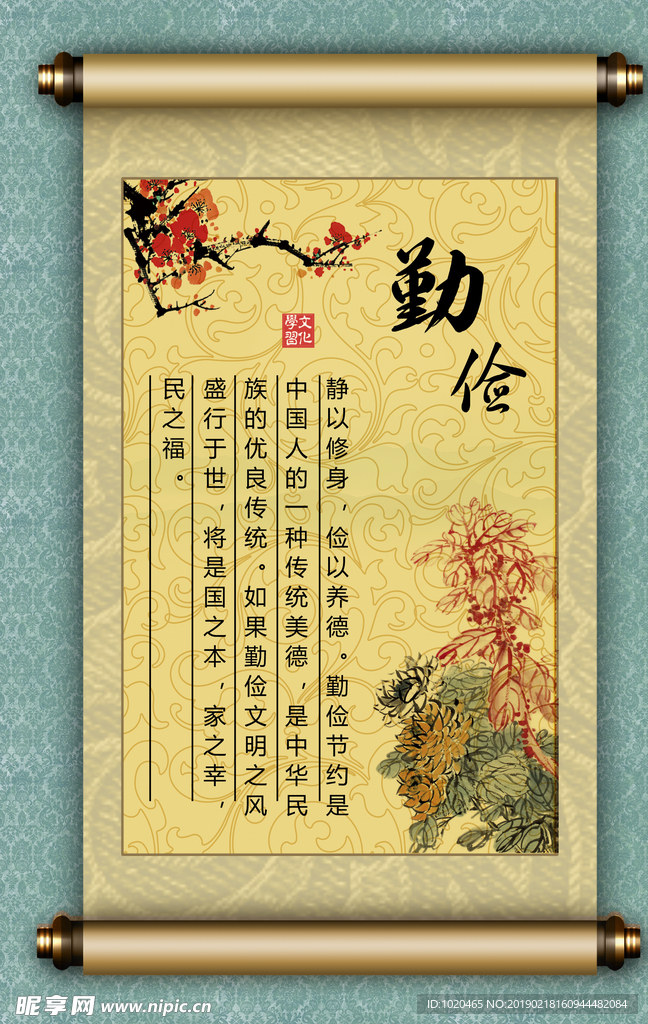 勤
俭
文化
學習
静以修身，俭以养德。勤俭节约是
中国人的一种传统美德，是中华民
族的优良传统。如果勤俭文明之风
盛行于世，将是国之本，家之幸，
民之福。
昵享网 www.nipic.cn
ID:1020465 NO:20190218160944482084